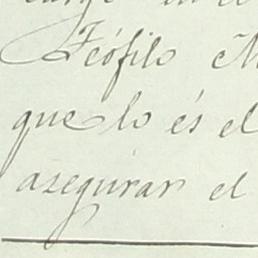 Teófilo
que lo és el
asegurar el